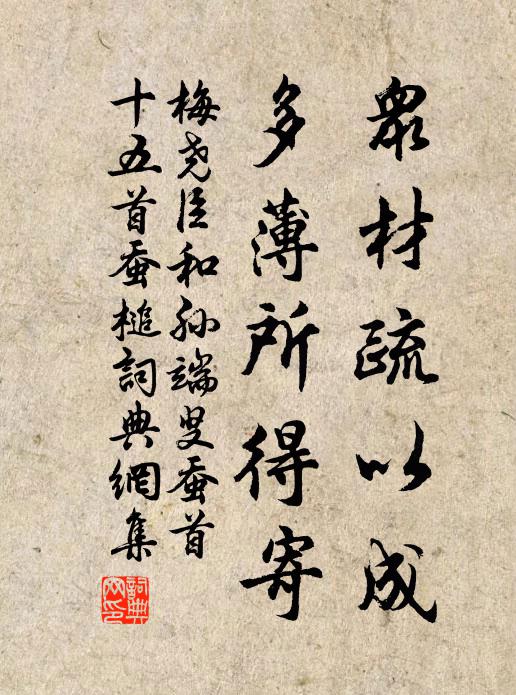 眾材疏以成
多薄所得寄
梅尧臣和孙端叟蚕首
十五首蚕槌詞典網集
詞典网印